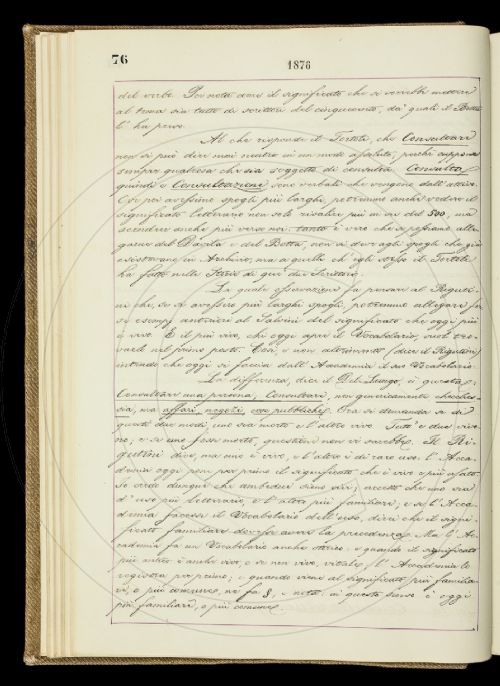 76
1876
del verbo. Poi nota come il significato che si vorrebbe mettere
al tema sia tutto di scrittori del cinquecento, da' quali il Botta
l' ha preso.
Al che risponde il Tortoli, che Consultare
non si può dire mai neutro in un modo assoluto, perchè suppone
sempre qualcosa che sia soggetto di consulta. Consulta,
quindi o Consultazione sono verbali che vengono dall' attivo.
Che poi avessimo spogli più larghi, potremmo anche vedere il
significato letterario non solo risalire più in su del 500, ma
scendere anche più verso noi: tanto è vero che si possono alle-
gare del Davila e del Botta, non si dovragli spogli che già
esistevano in Archivio, ma a quelli che egli stesso il Tortoli
ha fatto nelle Storie di quei due Scrittori.
La quale osservazione fa pensare al Riguti-
ni che, se si avessero più larghi spogli, potremmo allegare
esempj anteriori al Salvini del significato che oggi più
è vivo. E il più vivo, chi oggi apre il Vocabolario, vuol tro-
varlo nel primo posto. Così e non altrimenti (dice il Rigutini)
intende che oggi si faccia dall' Accademia il suo Vocabolario.
La differenza, dice il Del Lungo, è questa,
Consultare una persona; Consultare, non genericamente checches-
sia, ma affari, negozi, cose pubbliche. Ora si domanda se di
questi due modi, uno sia morto e l' altro vivo. Tutt' e due vivo-
no; e se uno fosse morto, questione non vi sarebbe. Il Ri-
gutini dice, ma uno è vivo, e l' altro è di raro uso. L' Acca-
demia oggi pone per primo il significato che è vivo e più usato.
Io credo dunque che ambedue siano vivi; eccetto che uno sia
d' uso più letterario, e l' altro più familiare; e se l' Acca-
demia facesse il Vocabolario dell' uso, direi che il signi-
ficato familiare dovesse avere la precedenza. Ma l' Ac-
cademia fa un Vocabolario anche storico, e quando il significato
più antico è anche vivo, e se non vivo, vitale, l' Accademia lo
registra per primo; e quando viene al significato più familia-
re, o più comune, ne fa §, e nota, in questo senso è oggi
più familiare, o più comune.